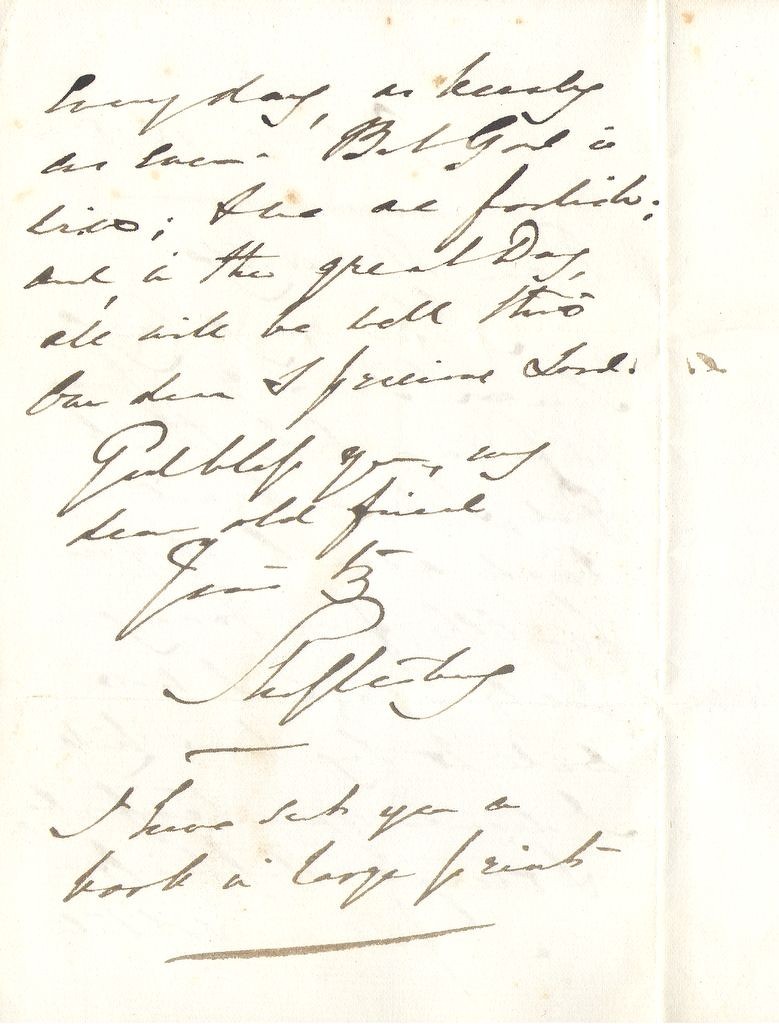 Every day, as keenly
as ever. But God is
wise; & we are foolish;
and, in the great Day,
all will be well thro
Our dear & precious Lord.
God bless you, my
dear old friend
Yours
Shaftesbury
I have sent you a
book in large print